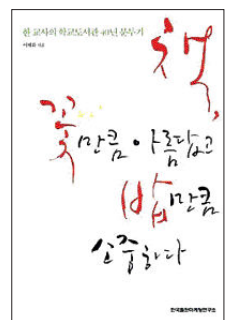 한 교사의 학교도서관 40년 분투기
지음
책,
꽃만큼 아름답고
밥만큼
소중하다
한국출판마케팅연구소